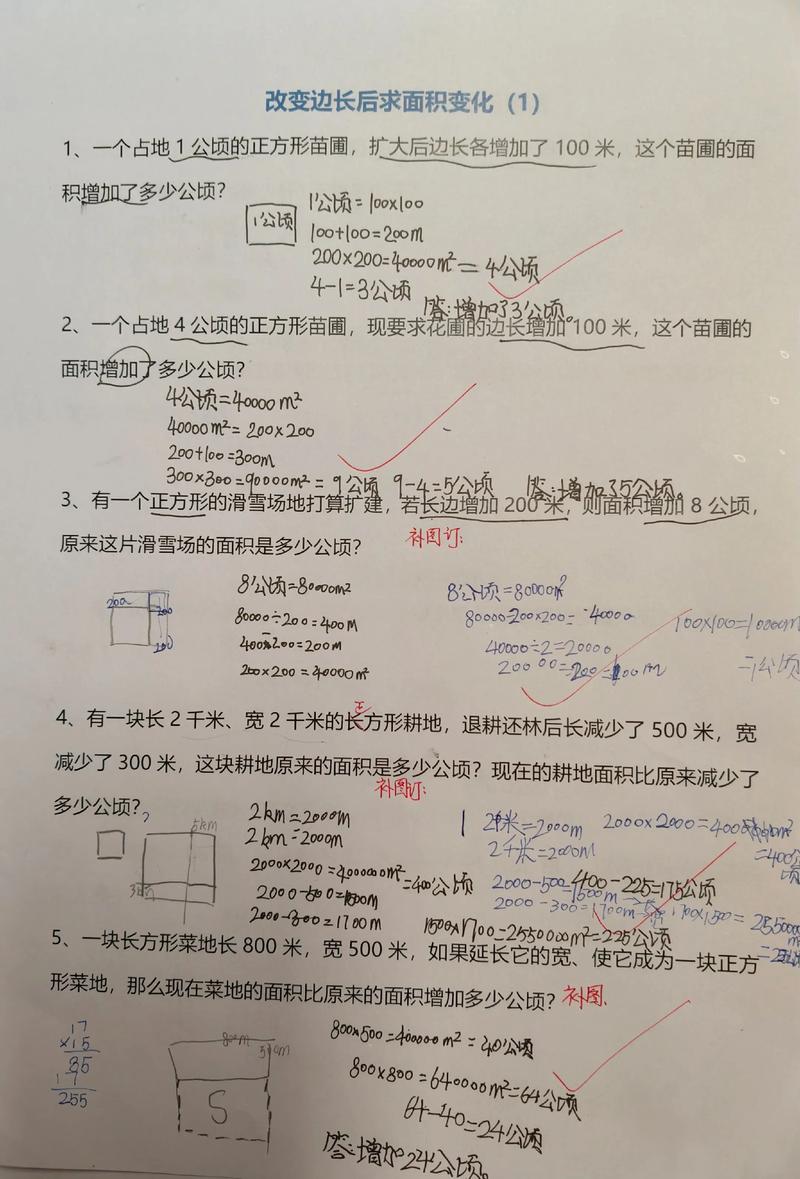 改变边长后求面积变化（1）
1、一个占地 1 公顷的正方形苗圃，扩大后边长各增加了 100 米，这个苗圃的面
积增加了多少公顷？
1公顷
1公顷=100×100
100+100=200m
200×200=40000m²=4公顷
4-1=3公顷
答:增加了3公顷。
2、一个占地 4 公顷的正方形苗圃，现要求花圃的边长增加 100 米，这个苗圃的
面积增加了多少公顷？
4公顷=40000m²
40000m²=200×200
200+100=300m
300×300=90000m²=9公顷 9-4=5公顷 答:增加了5公顷。
3、有一个正方形的滑雪场地打算扩建，若长边增加 200 米，则面积增加 8 公顷，
原来这片滑雪场的面积是多少公顷？
补图订:
200
200
200
8公顷=80000m²
80000÷200=400M
200×200=40000m²
8公顷=80000m²
80000-200×200=40000
40000÷2=20000
100×100=10000m
=1公顷
4、有一块长 2 千米、宽 2 千米的长方形耕地，退耕还林后长减少了 500 米，宽
正
减少了 300 米，这块耕地原来的面积是多少公顷？现在的耕地面积比原来减少了
多少公顷？
补图订:
2
5km
2km=2000M
2km=2000m
2000×2000=400000m²=400公顷
2000-500=1500m
2000-300=1700M
1500×1700=2550000m²=225公顷
400-225=175公顷
2千米=2000m
2千米=2000M
2000-500=1500m
2000-300=1700m
1700×1500=
5、一块长方形菜地长 800 米，宽 500 米，如果延长它的宽、使它成为一块正方
形菜地，那么现在菜地的面积比原来的面积增加多少公顷？
补图.
17
×15
85
17
255
800m
500m
S
800×500=400000m²=40公顷
800×800=640000m²=64公顷
64-40=24公顷
答:增加24公顷。